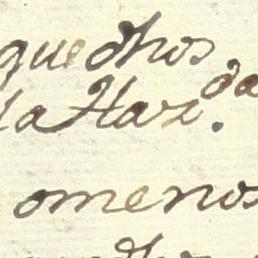 que dhos
la Haz.da
omenos